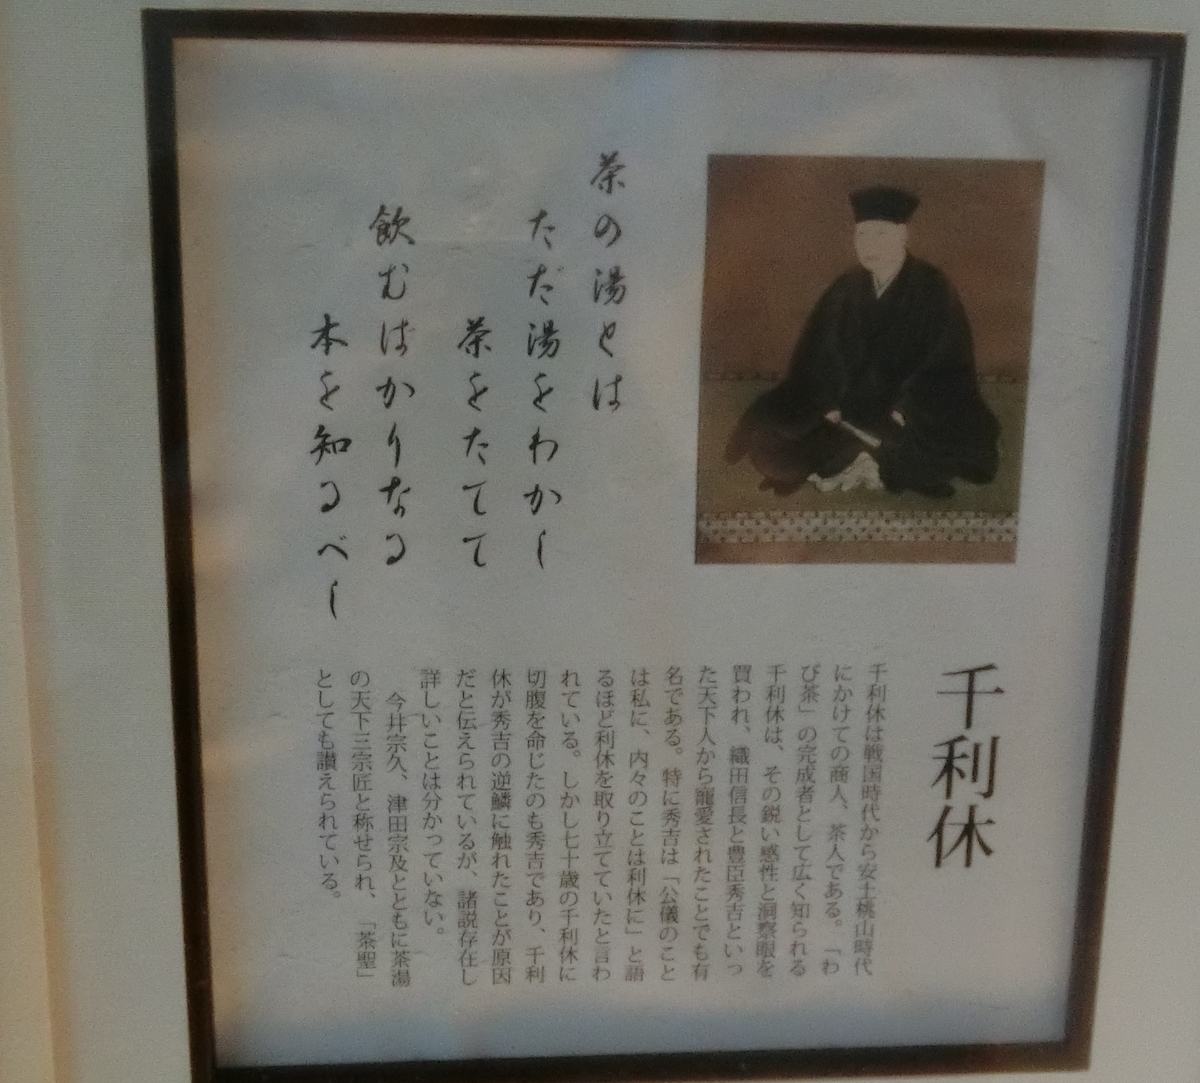 千利休
千利休は戦国時代から安土桃山時代
にかけての商人、茶人である。「わ
び茶」の完成者として広く知られる
千利休は、その鋭い感性と洞察眼を
買われ、織田信長と豊臣秀吉といっ
た天下人から寵愛されたことでも有
名である。特に秀吉は「公儀のこと
は私に、内々のことは利休に」と語
るほど利休を取り立てていたと言わ
れている。しかし七十歳の千利休に
切腹を命じたのも秀吉であり、千利
休が秀吉の逆鱗に触れたことが原因
だと伝えられているが、諸説存在し
詳しいことは分かっていない。
今井宗久、津田宗及とともに茶湯
の天下三宗匠と称せられ、「茶聖」
としても讃えられている。
茶の湯とは
ただ湯をわかし
茶をたてて
飲むばかりなる
本を知るべし